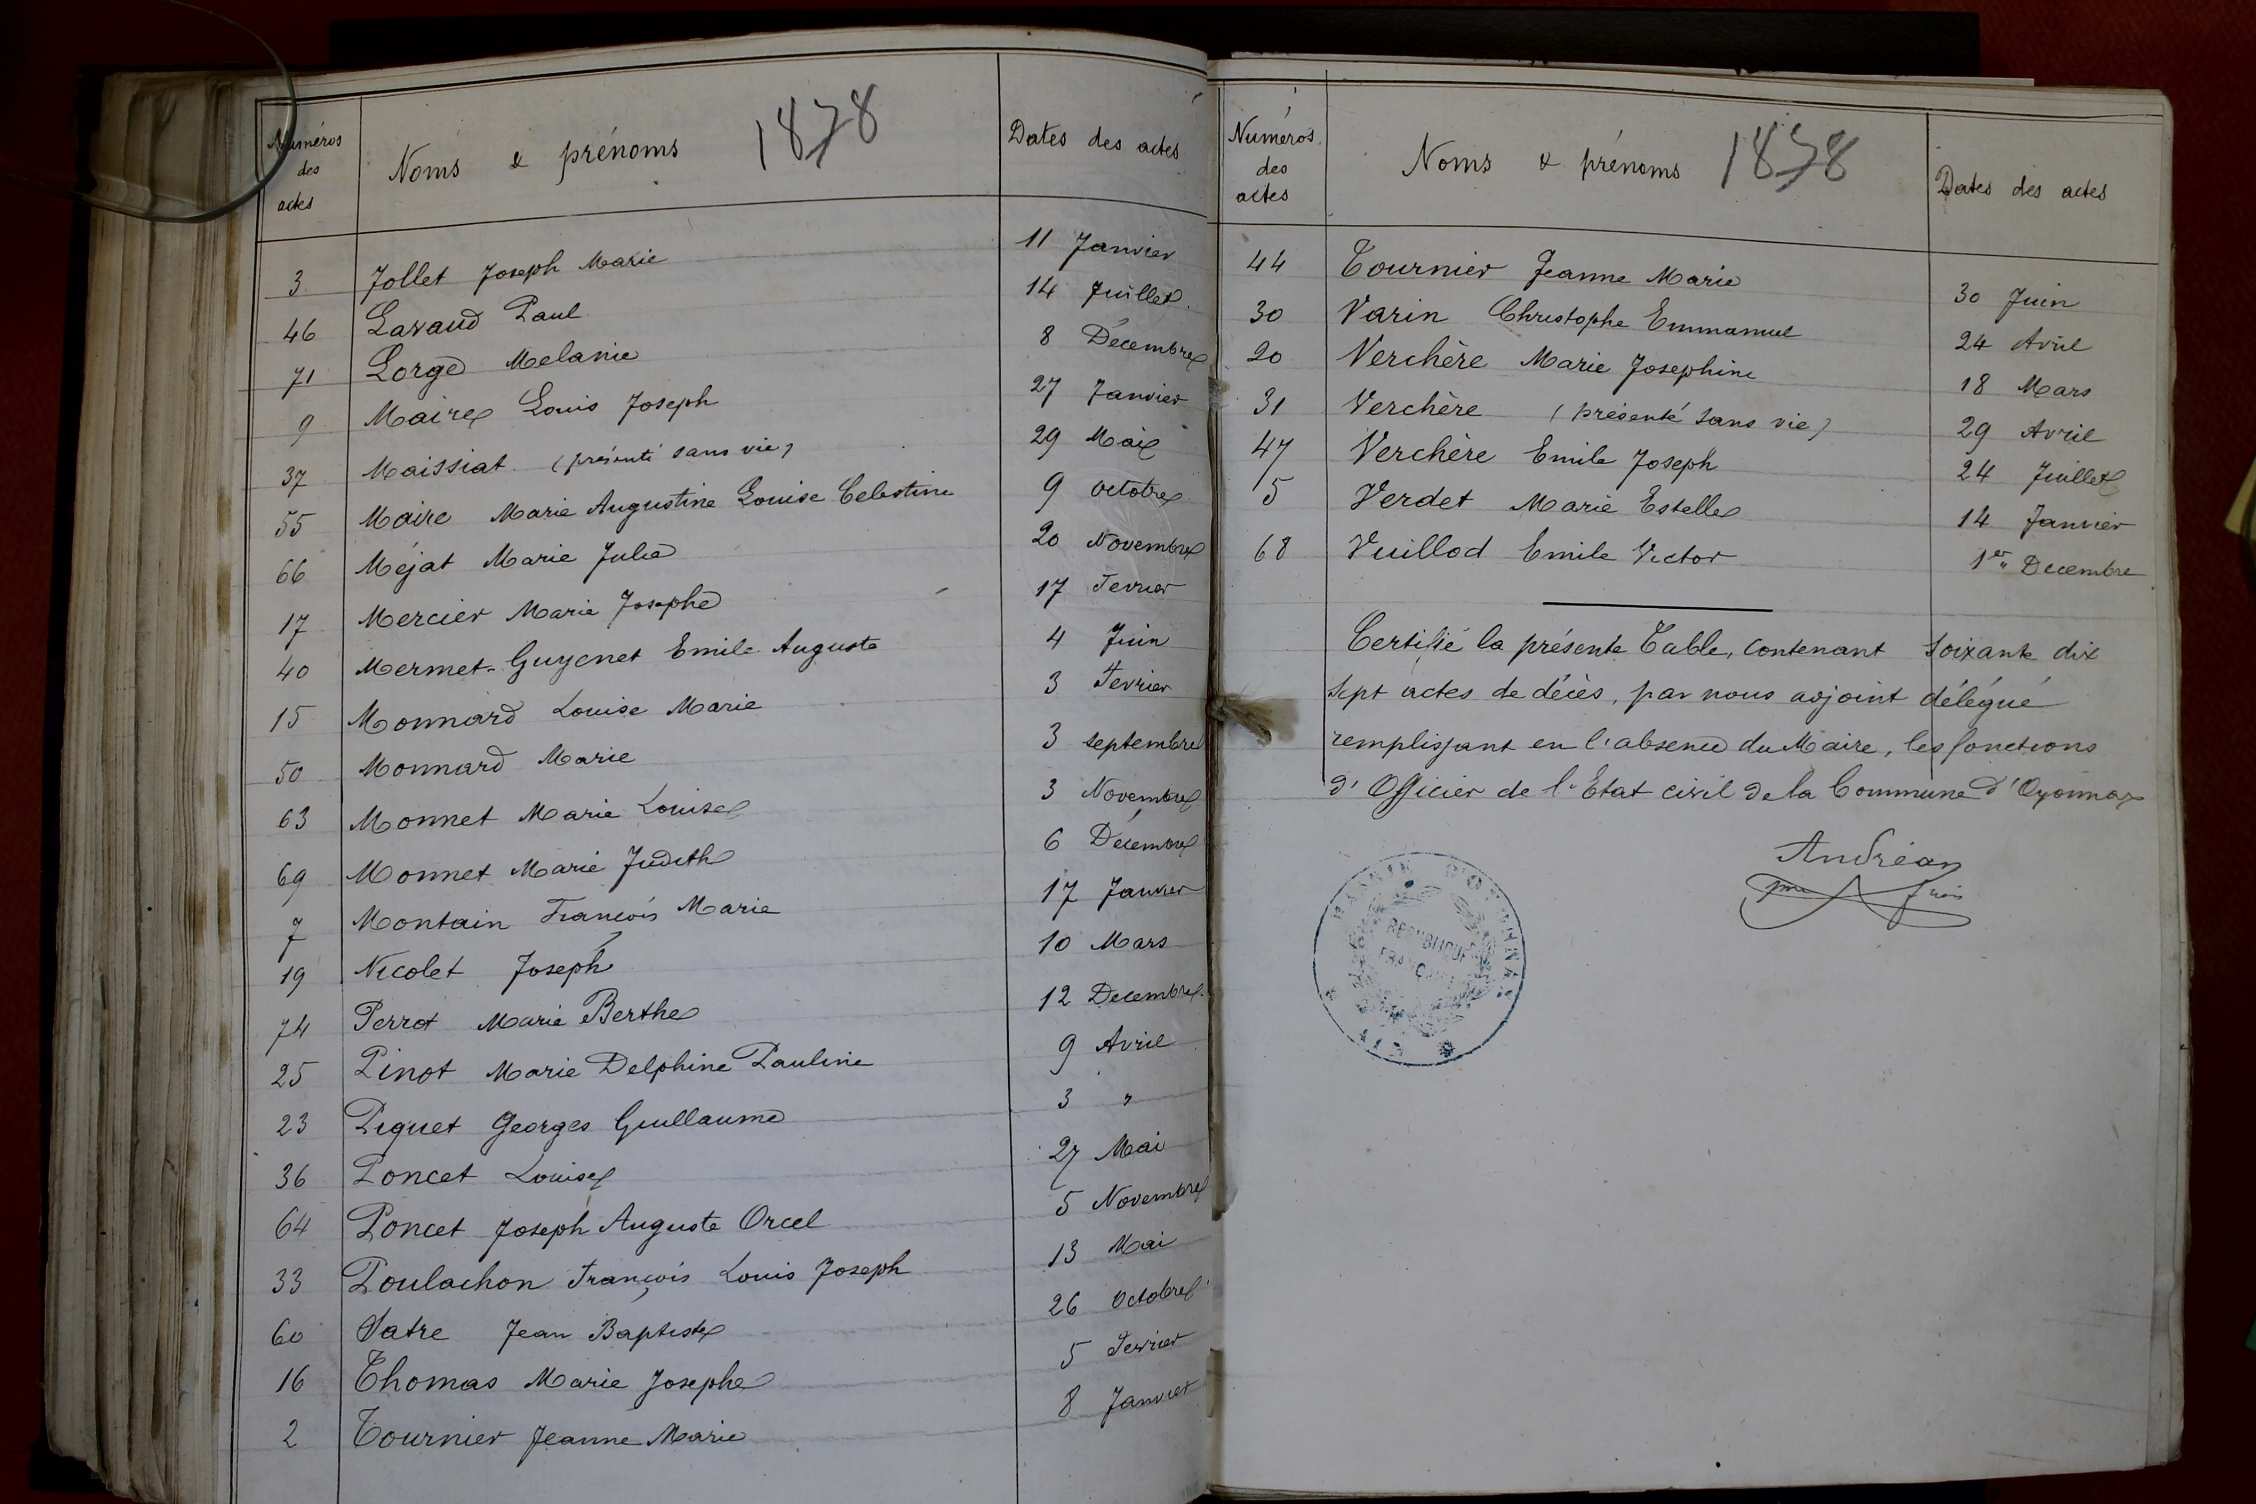 Numéros des actes | Noms & prénoms 1878 | Dates des actes
3 Jollet Joseph Marie 11 Janvier
46 Lavaud Paul 14 Juillet
71 Lorge Melanie 8 Décembre
9 Maire Louis Joseph 27 Janvier
37 Maissiat (présenté sans vie) 29 Mai
55 Maire Marie Augustine Louise Celestine 9 octobre
66 Méjat Marie Julie 20 Novembre
17 Mercier Marie Josephe 17 Fevrier
40 Mermet-Guyenet Emile Auguste 4 Juin
15 Monnard Louise Marie 3 Fevrier
50 Monnard Marie 3 septembre
63 Monnet Marie Louise 3 Novembre
69 Monnet Marie Judith 6 Décembre
7 Montain François Marie 17 Janvier
19 Nicolet Joseph 10 Mars
74 Perrot Marie Berthe 12 Decembre
25 Pinot Marie Delphine Pauline 9 Avril
23 Piquet Georges Guillaume 3 "
36 Poncet Louise 27 Mai
64 Poncet Joseph Auguste Orcel 5 Novembre
33 Poulachon François Louis Joseph 13 Mai
60 Satre Jean Baptiste 26 octobre
16 Thomas Marie Josephe 5 Fevrier
2 Tournier Jeanne Marie 8 Janvier
Numéros des actes | Noms & prénoms 1878 | Dates des actes
44 Tournier Jeanne Marie 30 Juin
30 Varin Christophe Emmanuel 24 Avril
20 Verchère Marie Josephine 18 Mars
31 Verchère (présenté sans vie) 29 Avril
47 Verchère Emile Joseph 24 Juillet
5 Verdet Marie Estelle 14 Janvier
68 Vuillod Emile Victor 1er Decembre
Certifié la présente Table, contenant soixante dix
sept actes de décès, par nous adjoint délégué
remplissant en l'absence du Maire, les fonctions
d'Officier de l'Etat civil de la Commune d'Oyonnax
Andréan
MAIRIE D'OYONNAX
REPUBLIQUE
FRANÇAISE
AIN